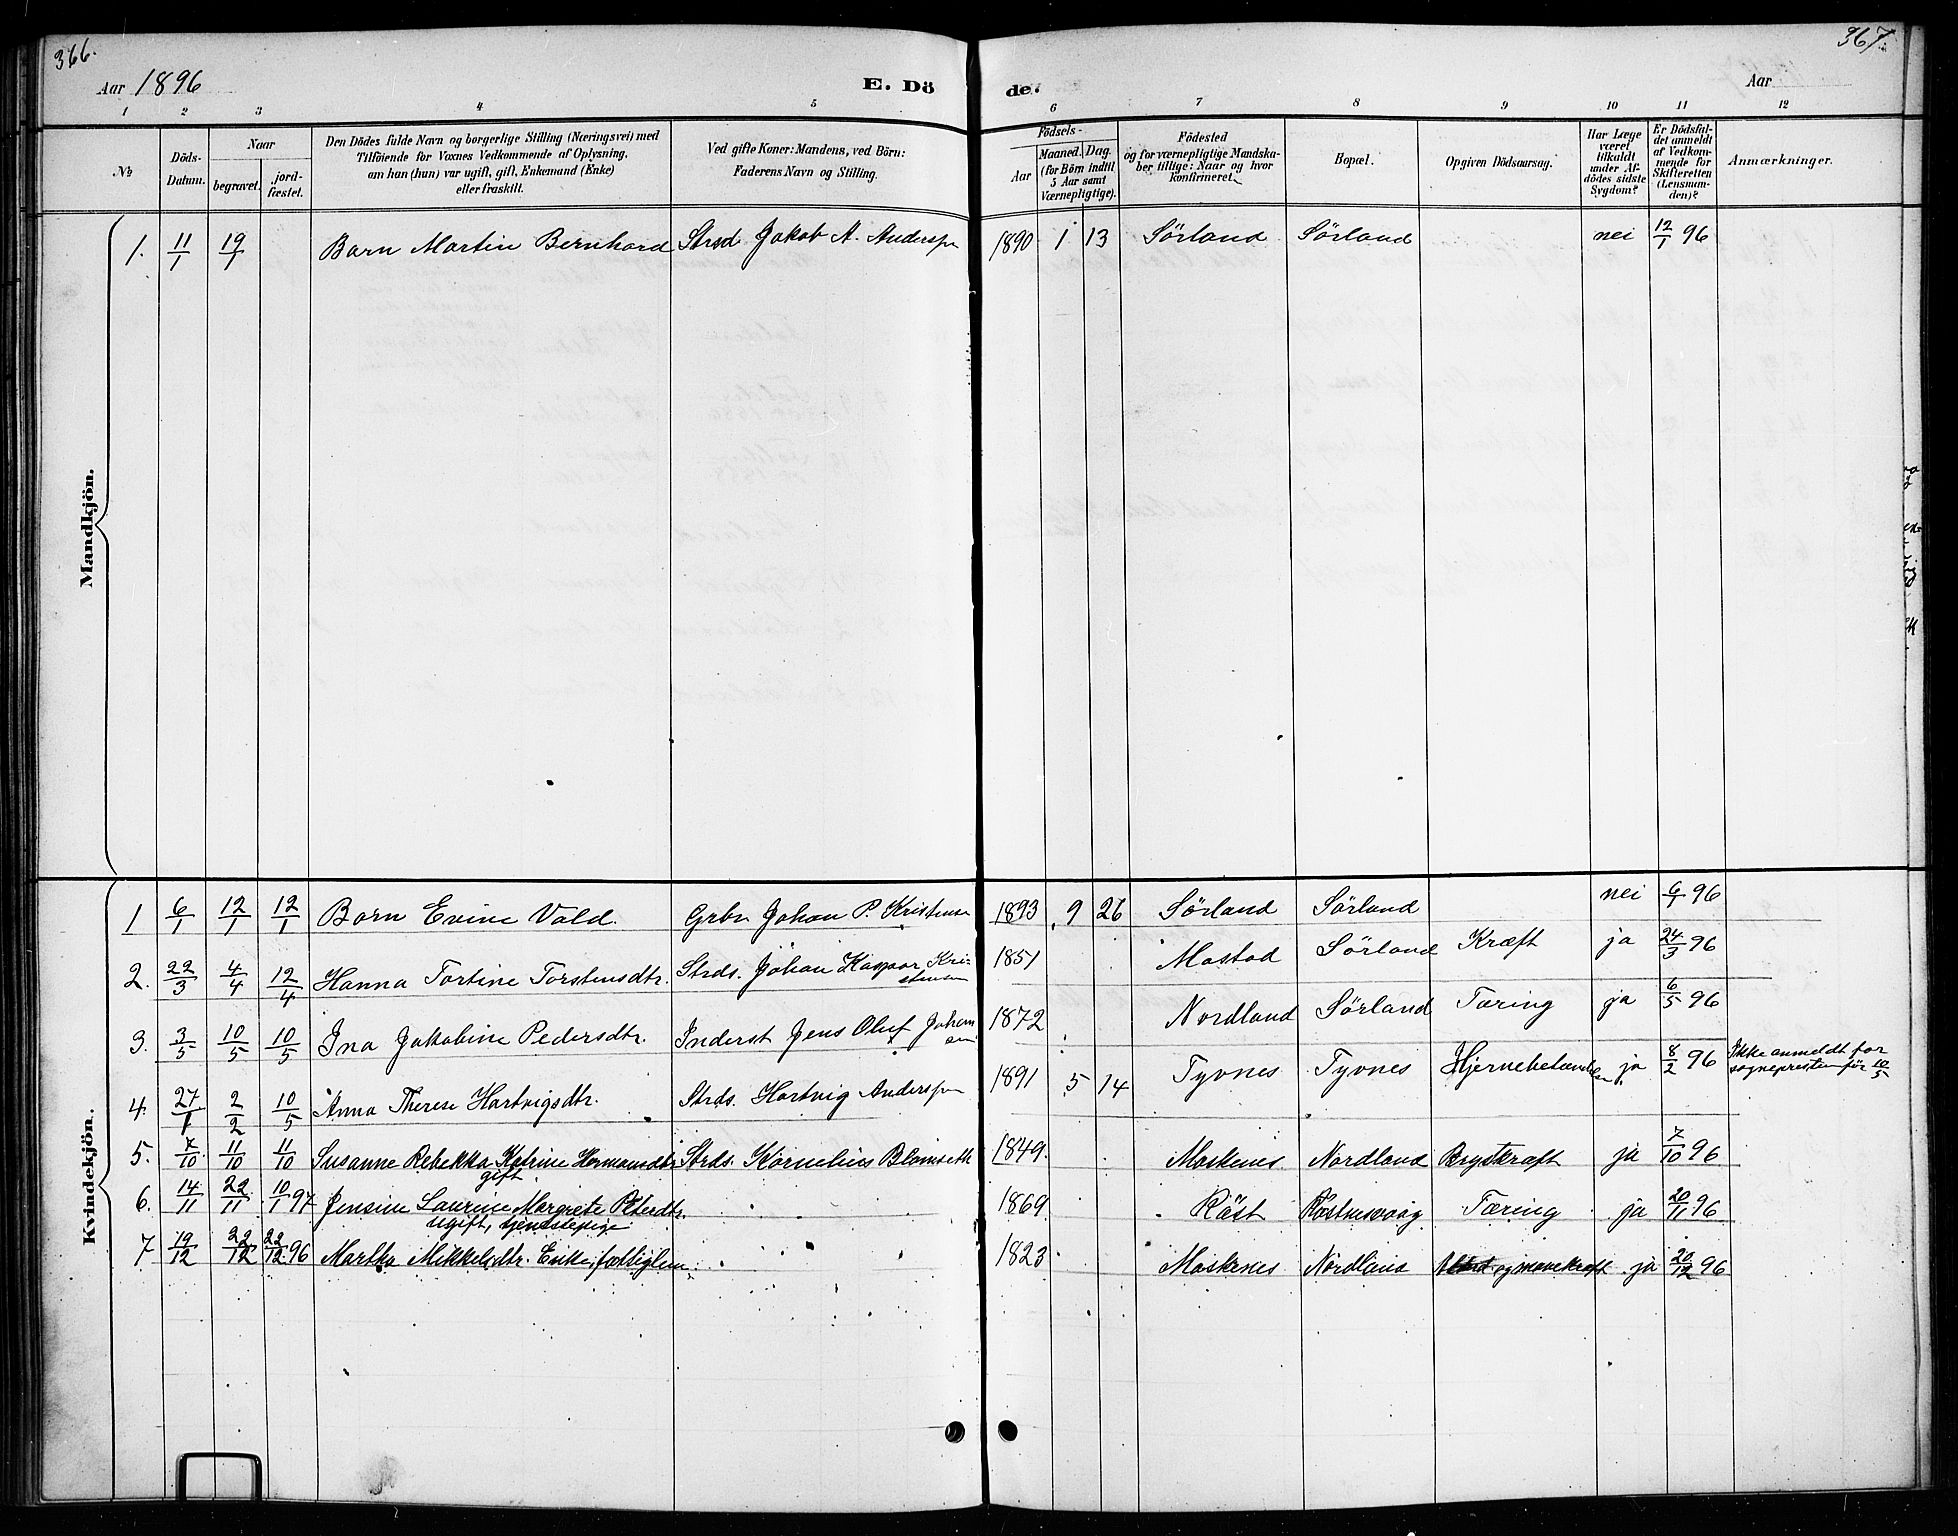 366.
367.
Aar 1896
E. Dö
de.
Aar
1 2 3 4 5 6 7 8 9 10 11 12
№
Döds-Datum.
Naar
begravet.
jord-fæstet.
Den Dödes fulde Navn og borgerlige Stilling (Næringsvei) med
Tilföiende for Voxnes Vedkommende af Oplysning.
om han (hun) var ugift, gift, Enkemand (Enke)
eller fraskilt.
Ved gifte Koner: Mandens, ved Börn:
Faderens Navn og Stilling.
Födsels-
Aar
Maaned. Dag.
(for Börn indtil
5 Aar samt
Værnepligtige).
Födested
og for værnepligtige Mandska-
ber tillige: Naar og hvor
konfirmeret.
Bopæl.
Opgiven Dödsaarsag.
Har Læge
været
tilkaldt
under Af-
dödes sidste
Sygdom?
Er Dödsfal-
det anmeldt
af Vedkom-
mende for
Skifteretten
(Lensman-
den)?
Anmærkninger.
Mandkjön.
1. 11/1 19/1 Barn Martin Bernhard Strsd Jakob A. Anderss 1890 1 13 Sörland Sörland nei 12/1 96
Kvindekjön.
1 6/1 12/1 12/1 Barn Evine Vald. Grbr Johan P. Kristens 1893 9 26 Sörland Sörland nei 6/1 96
2. 22/3 4/4 12/4 Hanna Tortine Torstensdtr. Strds. Johan Kaspar Kri-
stensen 1851 Mostad Sörland Kræft ja 24/3 96
3. 3/5 10/5 10/5 Ina Jakobine Pedersdtr. Inderst Jens Oluf Johan
sen 1872 Nordland Sörland Tæring ja 6/5 96
4. 27/1 2/2 10/5 Anna Therese Hartvigsdtr. Strds. Hartvig Anderss 1891 5 14 Tyvnes Tyvnes Hjernebetænd
else ja 8/2 96 Ikke anmeldt for
sognepresten för 10/5
5. 7/10 11/10 11/10 Susanne Rebekka Katrine Hermansdtr Strds. Kornelius Blomseth 1849. Moskenes Nordland Brystkræft ja 7/10 96
gift
6. 14/11 22/11 10/1 97 Jensine Laurine Margrete Petersdtr. 1869 Röst Röstnesvaag Tæring ja 20/11 96
ugift, tjenestepige
7 19/12 22/12 22/12 96 Martha Mikkelsdtr. Enke, fattiglem 1823 Moskenes Nordland og mavekræft ja 20/12 96